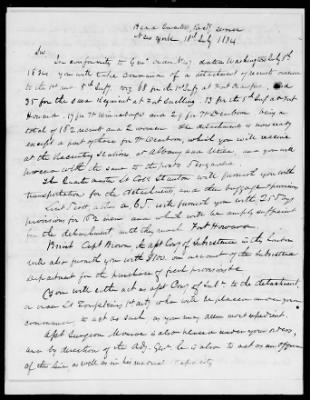 Head Quarters East Dept
New York 18th July 1834
Sir
In conformity to Genl order dated Washington July 5th
1834 you will take command of a detachment of recruits
for the 1st and 5th Infy, 88 for the 1st Infy at Fort
35 for the same Regiment at Fort Snelling, 13 for the 5th Infy at Fort
Howard, 17 for Ft Winnebago and 29 for Ft Dearborn being a
total of 182 recruits and 2 women. The detachment is now ready
except a part of those for Ft Dearborn, which you will receive
at the Recruiting Stations at Albany and Utica, and you will
proceed with the same to the posts designated.
The Quarter Master Lt Col Stanton will furnish you with
transportation for the detachment and their baggage
Lieut Scott, act A. C. S. will furnish you with 25 days
provision for 182 men and which will be amply sufficient
for the detachment until they reach Fort Howard.
Brevt Capt Brown Asst Comy of Subsistence in this harbour
will also furnish you with $100 on account of the Subsistence
department for the purchase of fresh provisions.
You will either act as Asst Comy of Subs to the detachment,
or order Lt Tompkins 1st Arty who will be placed under your
command to act as such as you may deem most expedient.
Asst Surgeon Monroe is also placed under your orders,
and by direction of the Adj. Genl he is also to act as an officer
of the line, as well as in his medical capacity